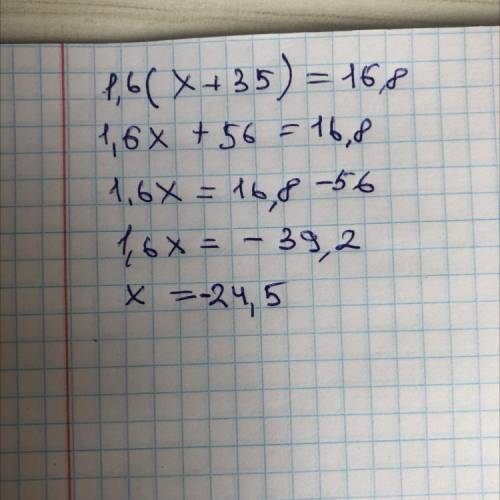 1,6(x+35)=16,8
1,6x+56=16,8
1,6x=16,8-56
1,6x=-39,2
x=-24,5